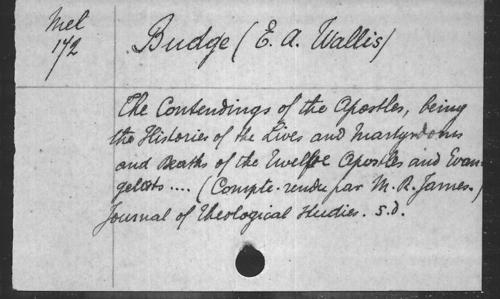 Mel
172
Budge (E. A. Wallis)
The Contendings of the Apostles, being
the Histories of the Lives and Martyrdoms
and Deaths of the Twelfe Apostles and Evan-
gelists .... (Compte-rendu par M. R. James.)
Journal of Theological Studies. s.d.